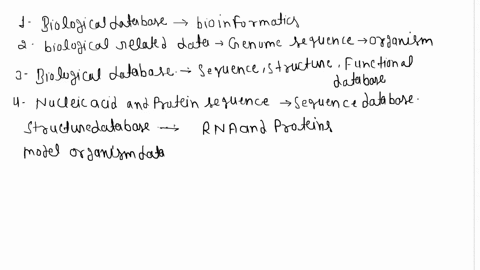 1- Biological database → bioinformatics
2- biological related data → Genome sequence → organism
3- Biological database → Sequence, structure, Functional
database
4- Nucleic acid and Protein sequence → Sequence database.
Structure database → RNA and Proteins
model organism data